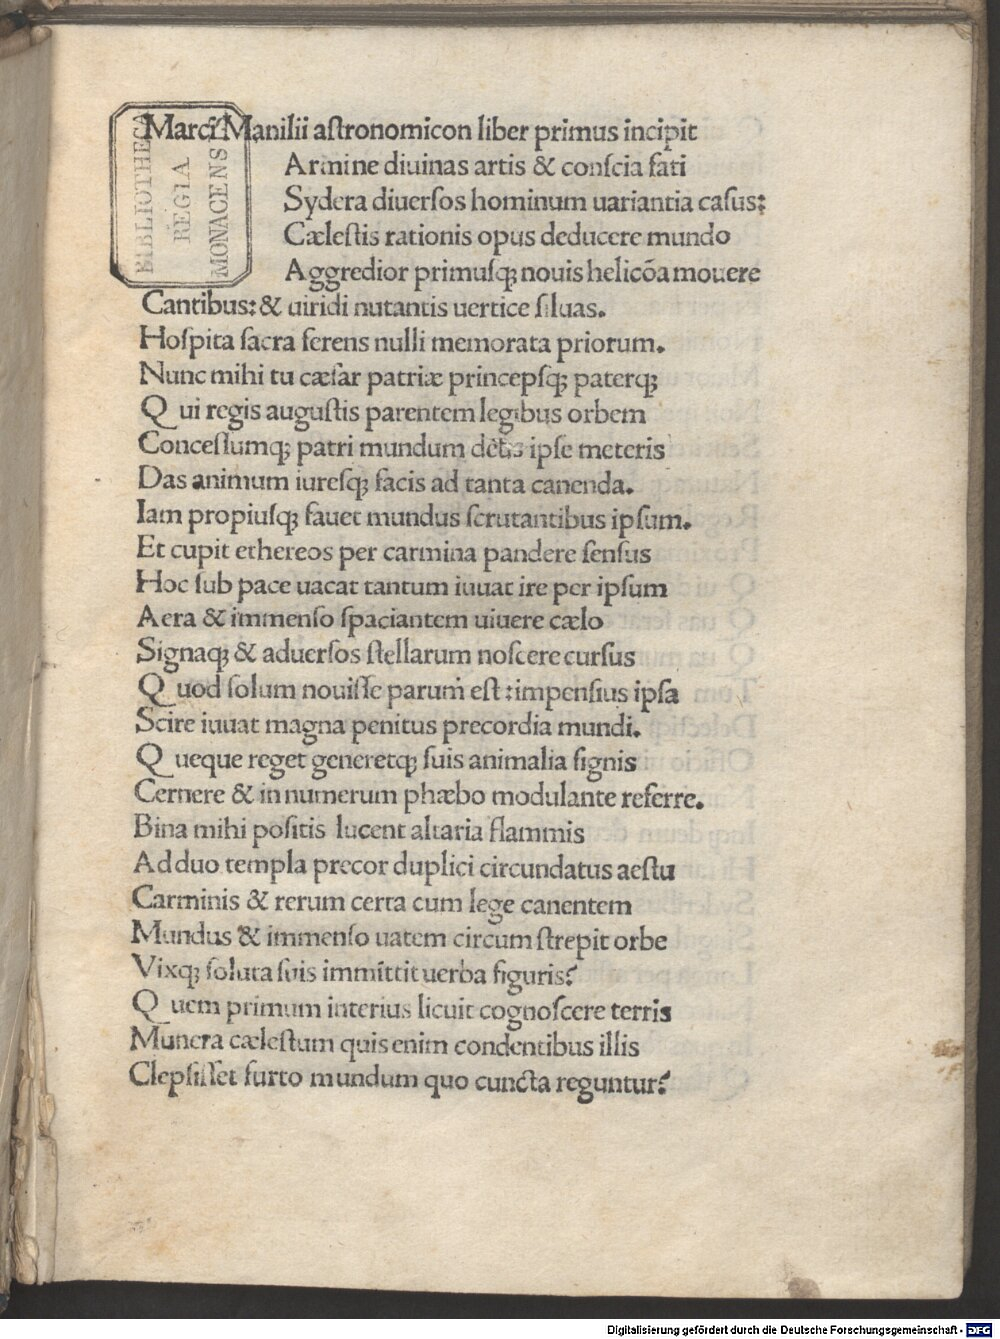 Marci Manilii aſtronomicon liber primus incipit
Armine diuinas artis & conſcia fati
Sydera diuerſos hominum uariantia caſus:
Cæleſtis rationis opus deducere mundo
Aggredior primuſq; nouis helicõa mouere
Cantibus: & uiridi nutantis uertice ſiluas.
Hoſpita ſacra ferens nulli memorata priorum.
Nunc mihi tu cæſar patriæ princepſq; paterq;
Qui regis auguſtis parentem legibus orbem
Conceſſumq; patri mundum deus ipſe meteris
Das animum iureſq; facis ad tanta canenda.
Iam propiuſq; fauet mundus ſcrutantibus ipſum.
Et cupit ethereos per carmina pandere ſenſus
Hoc ſub pace uacat tantum iuuat ire per ipſum
Aera & immenſo ſpaciantem uiuere cælo
Signaq; & aduerſos ſtellarum noſcere curſus
Quod ſolum nouiſſe parum eſt: impenſius ipſa
Scire iuuat magna penitus precordia mundi.
Queque reget generetq; ſuis animalia ſignis
Cernere & in numerum phæbo modulante referre.
Bina mihi poſitis lucent altaria flammis
Ad duo templa precor duplici circundatus aeſtu
Carminis & rerum certa cum lege canentem
Mundus & immenſo uatem circum ſtrepit orbe
Vixq; ſoluta ſuis immittit uerba figuris?
Quem primum interius licuit cognoſcere terris
Munera cæleſtum quis enim condentibus illis
Clepſiſſet furto mundum quo cuncta reguntur?
BIBLIOTHECA
REGIA
MONACENSIS
Digitalisierung gefördert durch die Deutsche Forschungsgemeinschaft - DFG